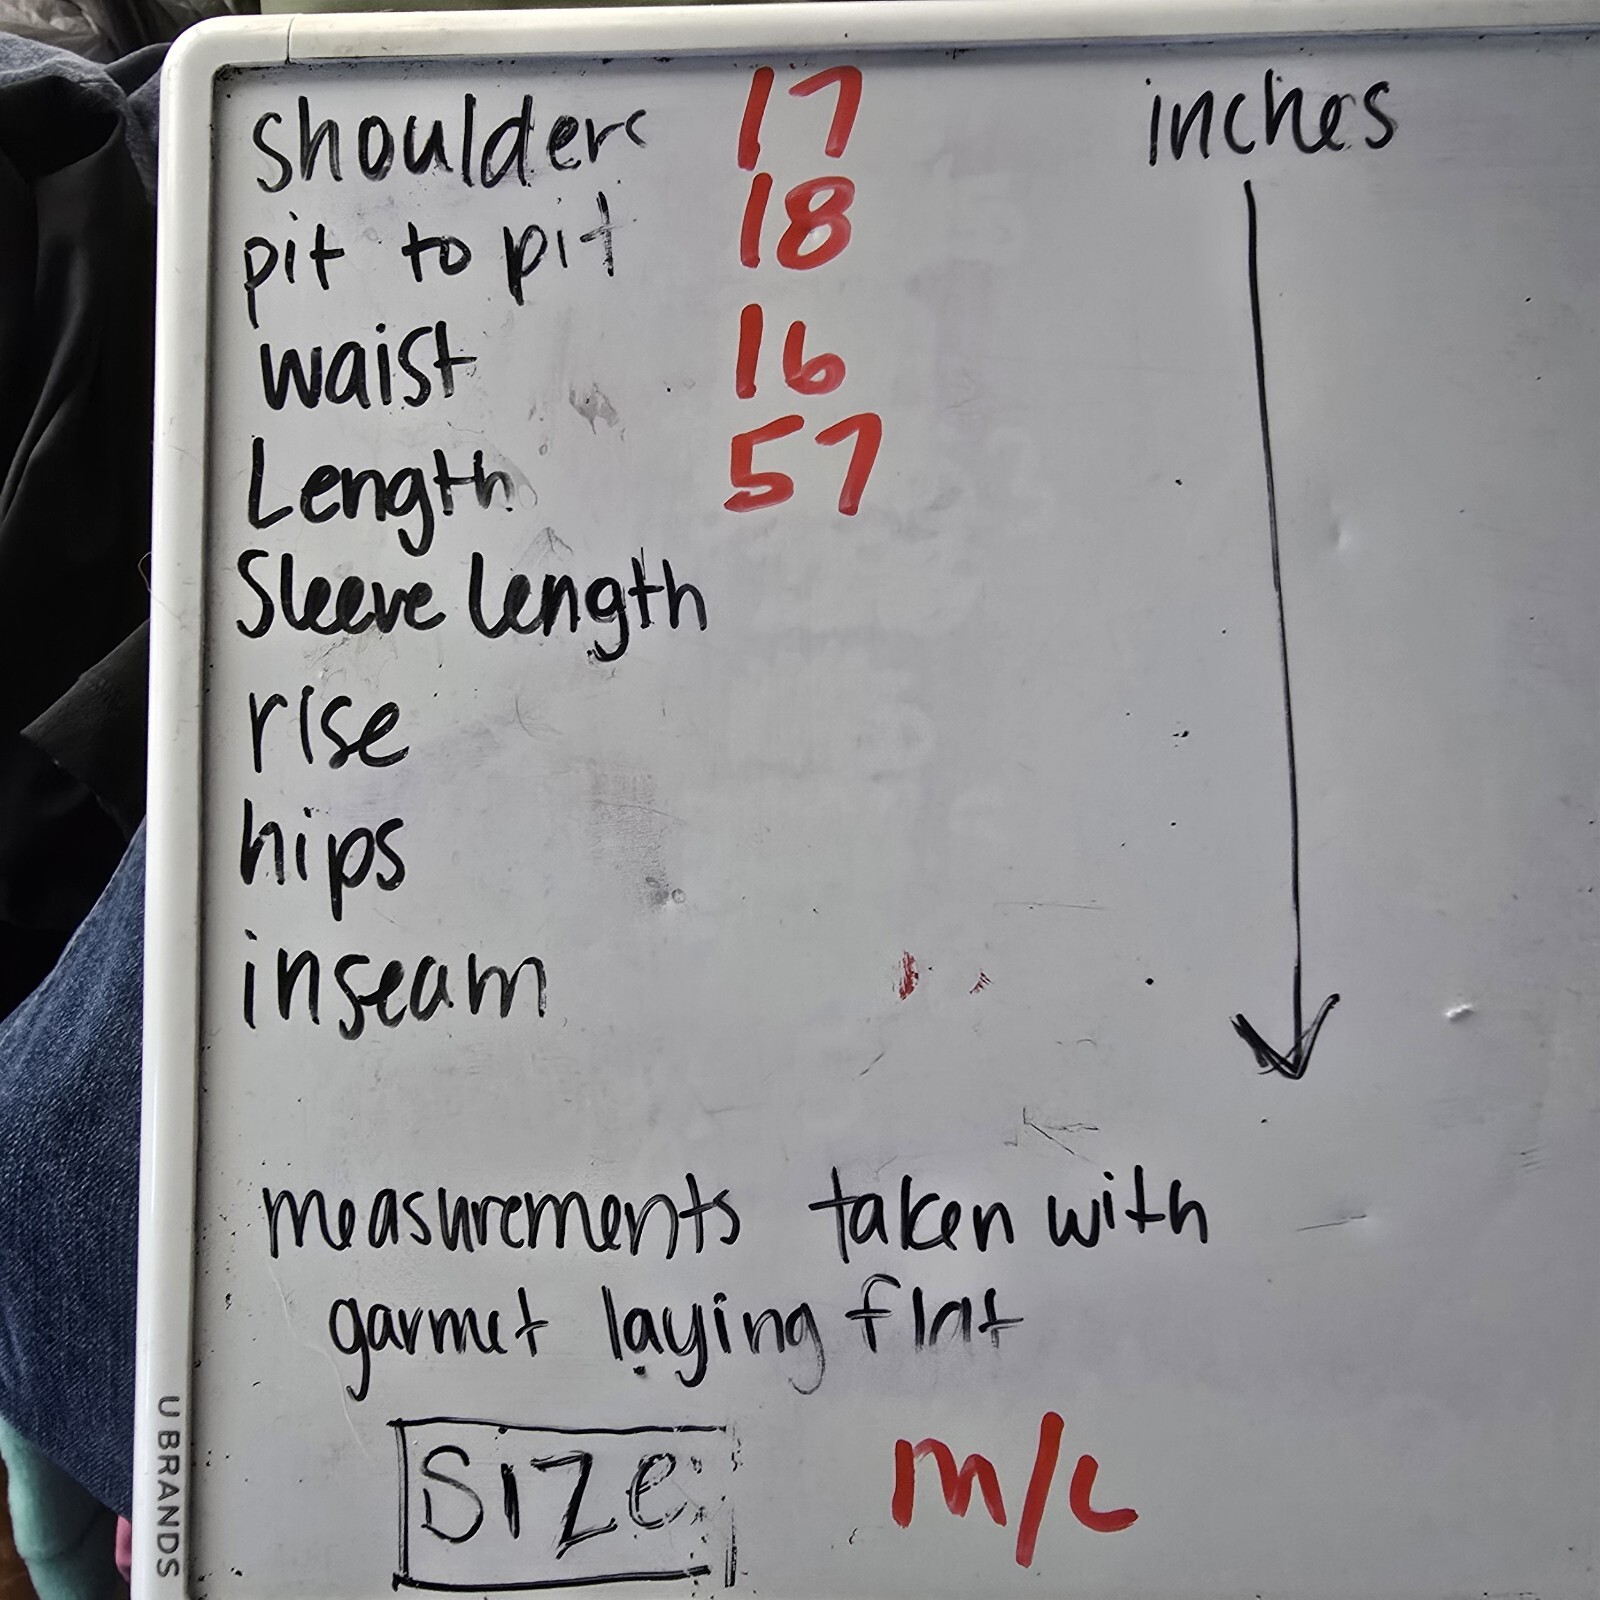 shoulders 17 inches
pit to pit 18
waist 16
Length 57
Sleeve length
rise
hips
inseam
measurements taken with
garmet laying flat
SIZE M/L
U BRANDS